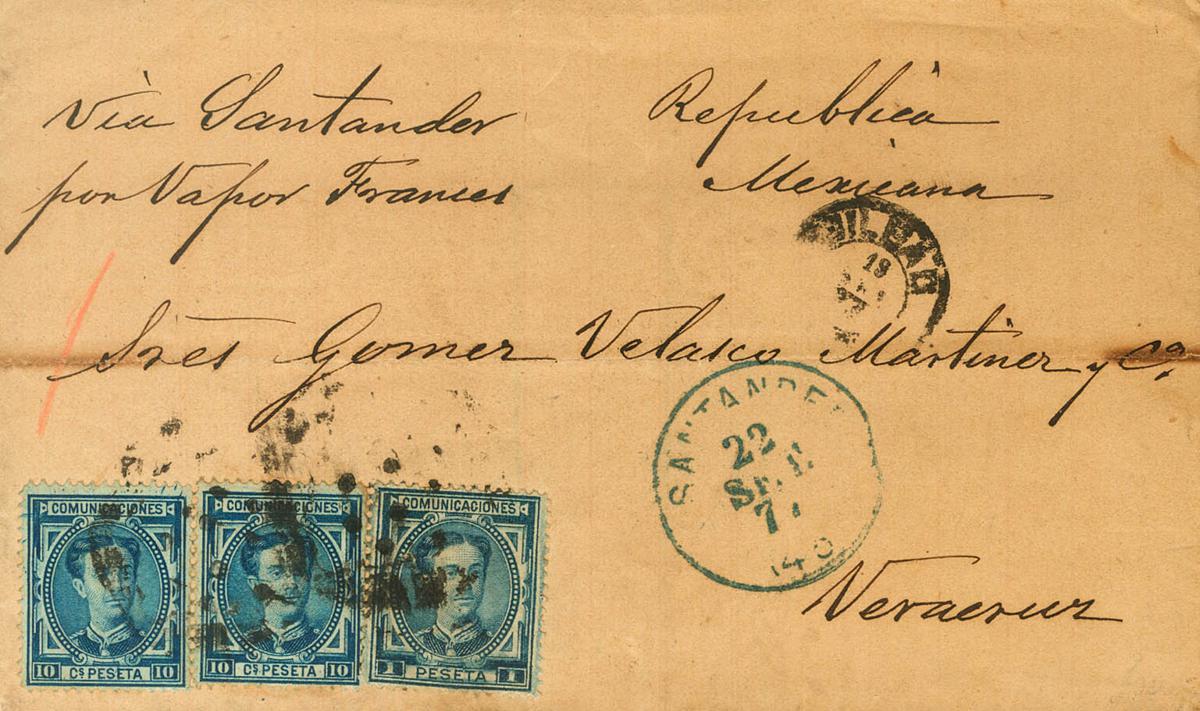 via Santander
por Vapor Frances
Republica
Mexicana
BILBAO
18
Sres Gomez Velasco Martinez y Ca.
SANTANDER
22
SET.E
7
Veracruz
COMUNICACIONES
10 Cs PESETA 10
COMUNICACIONES
10 Cs PESETA 10
COMUNICACIONES
1 PESETA 1